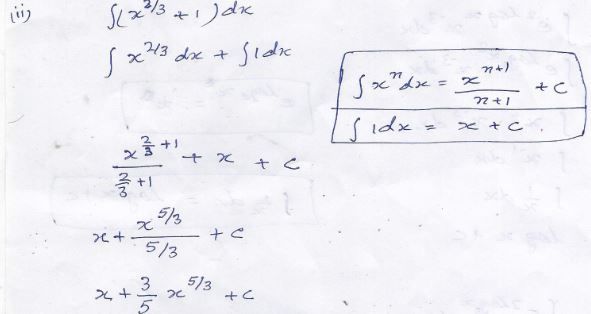 (ii) ∫(x^2/3 + 1) dx
∫ x^2/3 dx + ∫1dx
∫ x^n dx = x^(n+1)/(n+1) + c
∫ 1dx = x + c.
x^(2/3 + 1)/(2/3 + 1) + x + c
x + x^5/3/(5/3) + c
x + 3/5 x^5/3 + c